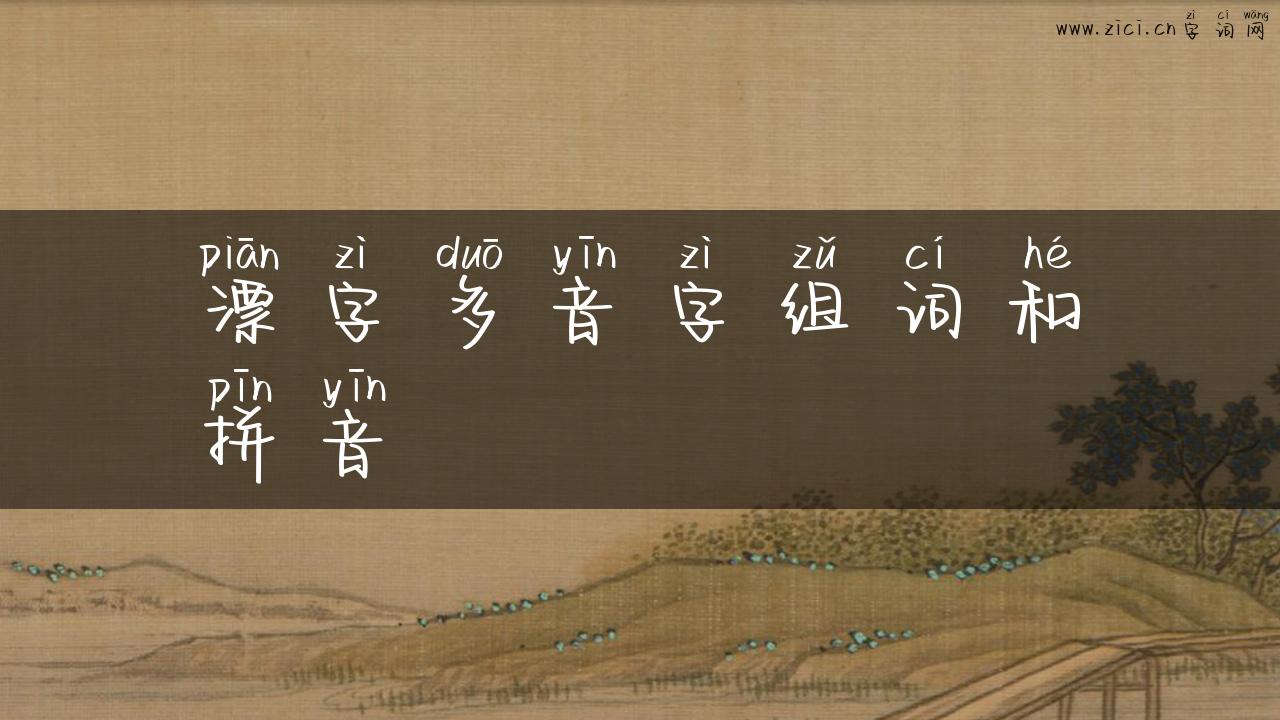 zì cí wǎng
www.zici.cn 字词网
piān zì duō yīn zì zǔ cí hé
漂字多音字组词和
pīn yīn
拼音